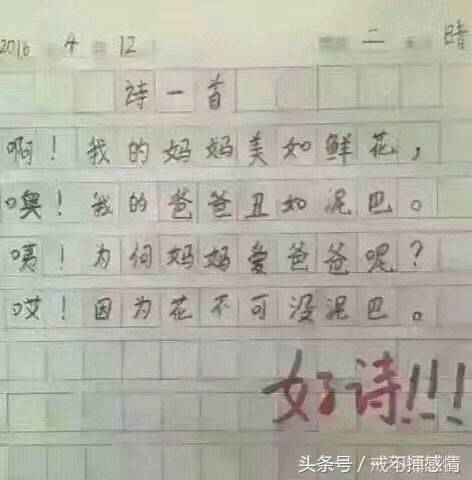 2016 4 12 二 晴
诗一首
啊！我的妈妈美如鲜花，
噢！我的爸爸丑如泥巴。
咦！为何妈妈爱爸爸呢？
哎！因为花不可没泥巴。
好诗!!!
头条号／戒不掉感情